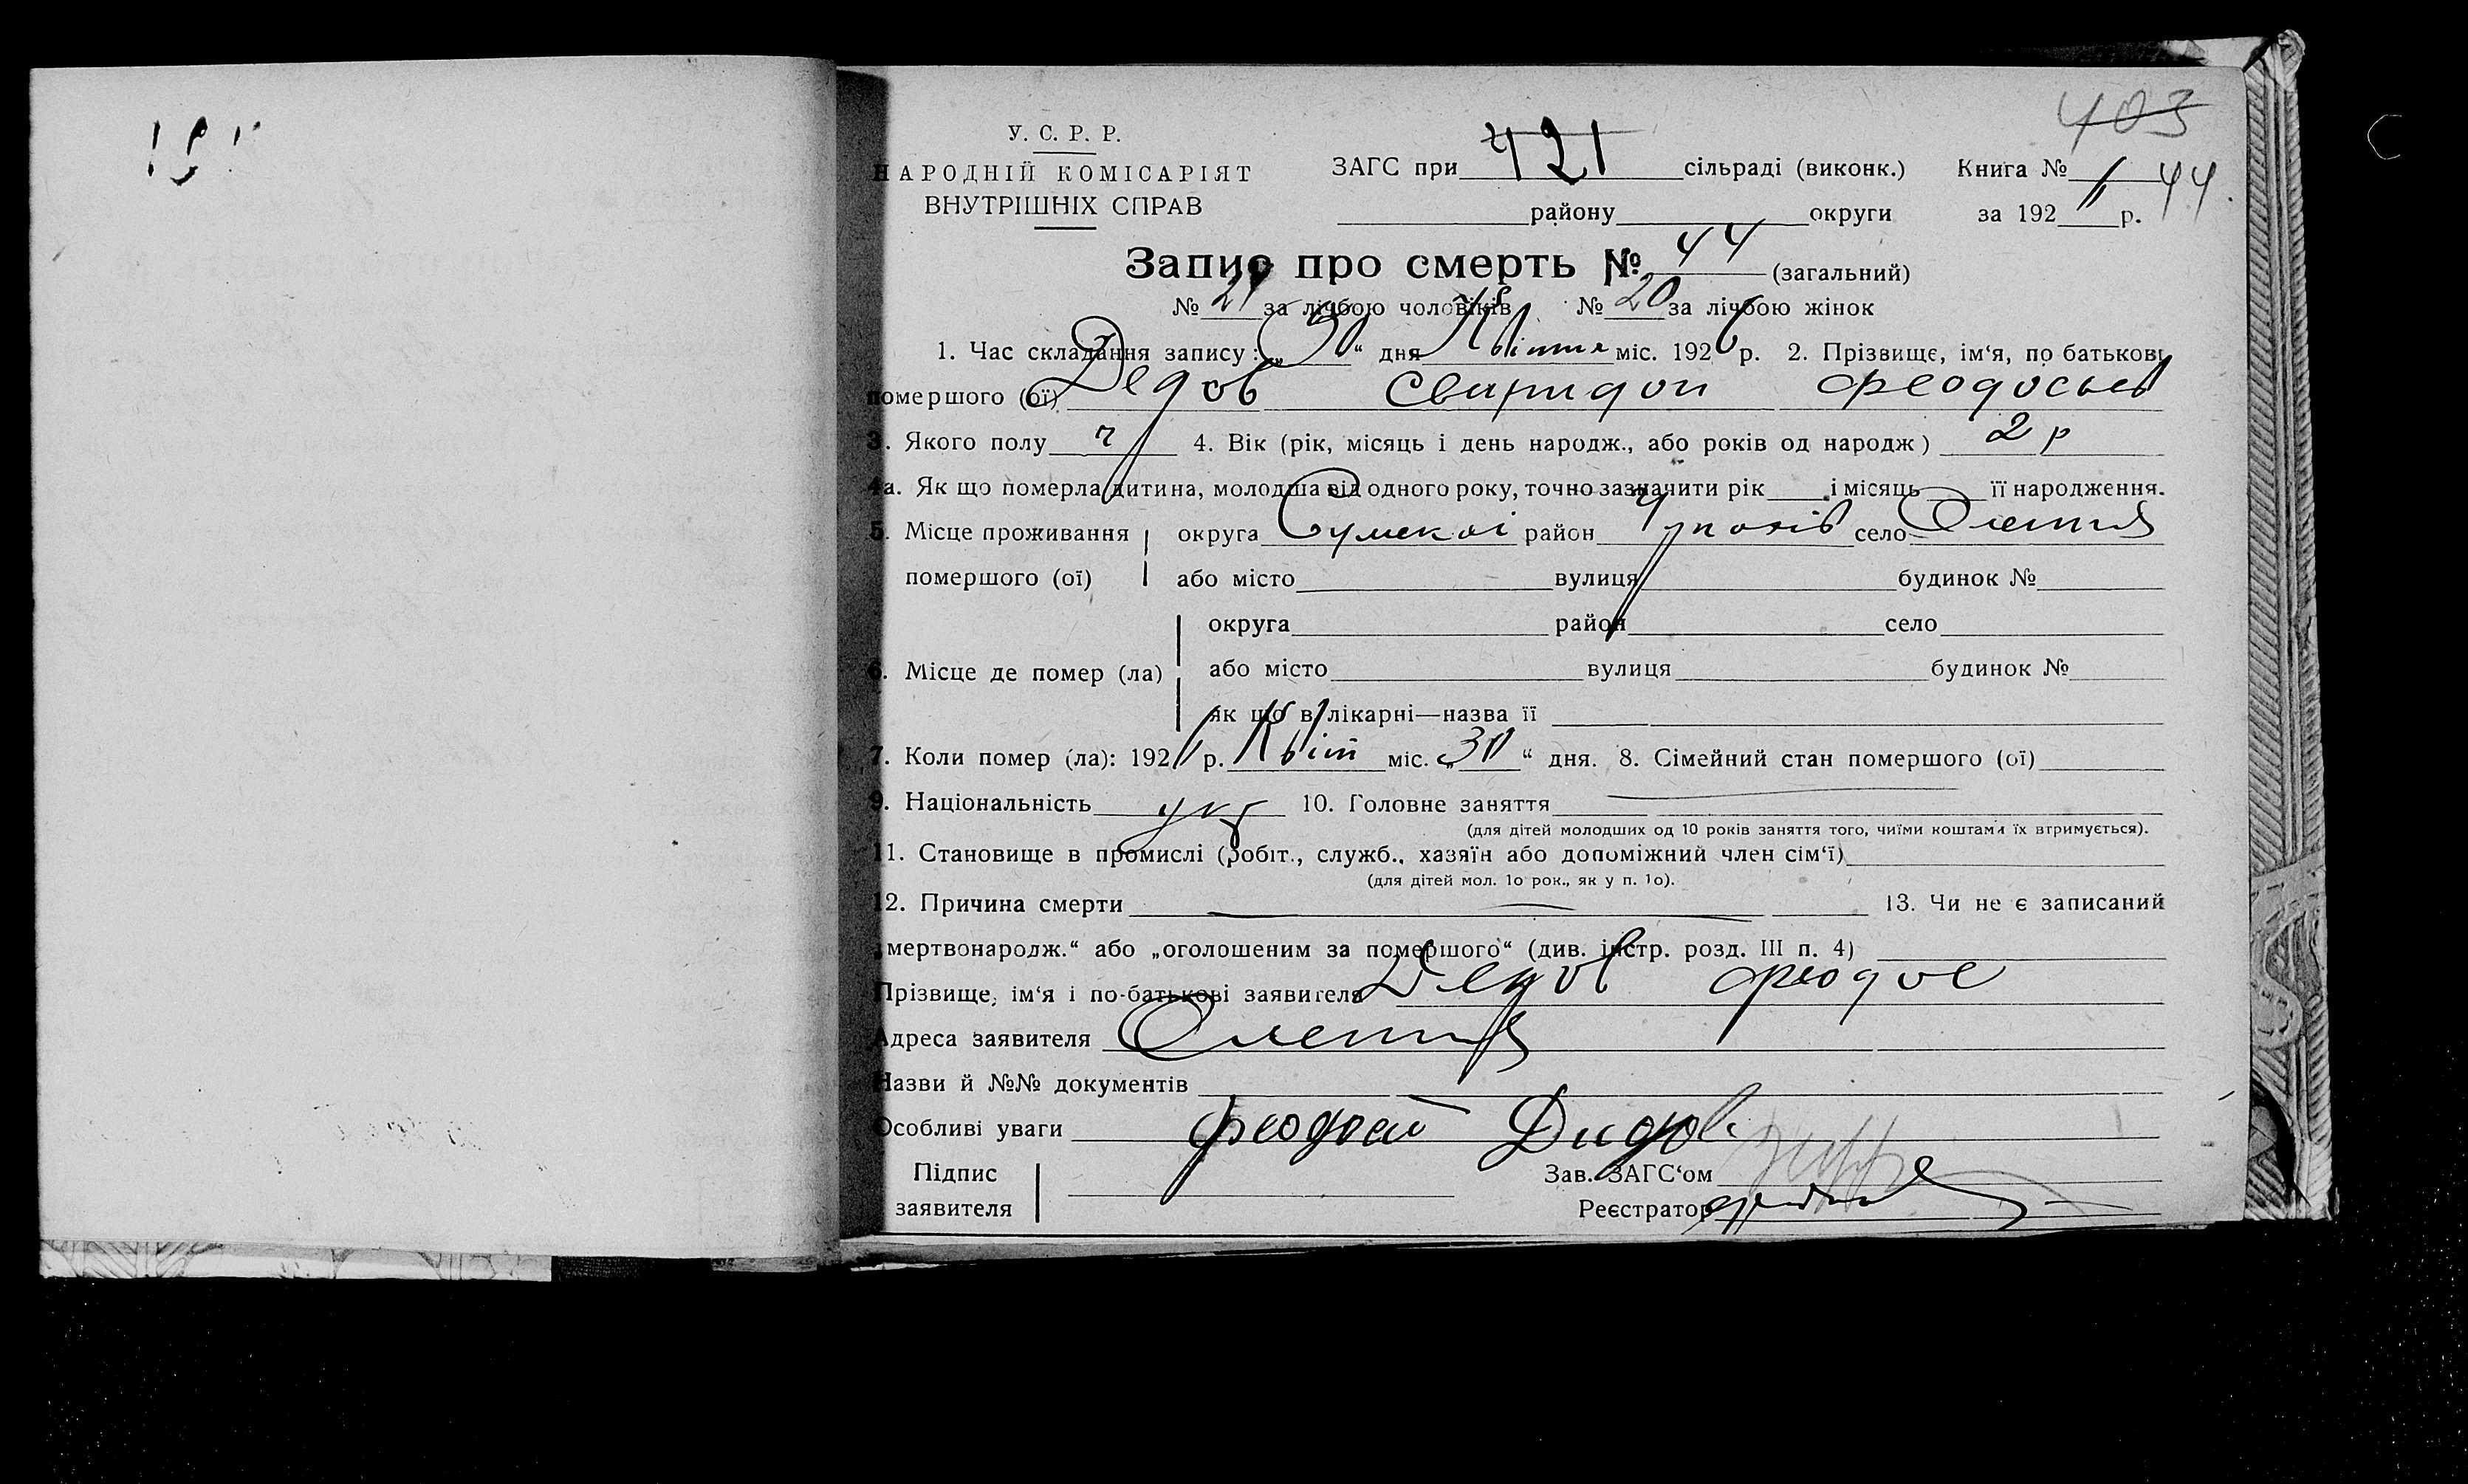 403
У. С. Р. Р.
НАРОДНІЙ КОМІСАРІЯТ
ВНУТРІШНІХ СПРАВ
ЗАГС при 421 сільраді (виконк.)
району округи
Книга № 44
за 192 р.
Запис про смерть № 44 (загальний)
№ за лічбою чоловіків № 20 за лічбою жінок
1. Час складання запису: „30“ дня Квітня міс. 1926 р. 2. Прізвище, ім‘я, по батькові
помершого (ої) Дедов Свиридон Феодосьев
3. Якого полу ч 4. Вік (рік, місяць і день народж., або років од народж) 2 р
4а. Як що померла дитина, молодша від одного року, точно зазначити рік і місяць її народження.
5. Місце проживання помершого (ої) округа Сумскої район село
або місто вулиця будинок №
6. Місце де помер (ла) округа район село
або місто вулиця будинок №
як що в лікарні—назва її
7. Коли помер (ла): 1926 р. Квіт міс. „30“ дня. 8. Сімейний стан помершого (ої)
9. Національність укр 10. Головне заняття
(для дітей молодших од 10 років заняття того, чиїми коштами їх втримується).
11. Становище в промислі (робіт., служб., хазяїн або допоміжний член сім‘ї)
(для дітей мол. 1о рок., як у п. 1о).
12. Причина смерти — 13. Чи не є записаний
„мертвонародж.“ або „оголошеним за помершого“ (див. інстр. розд. III п. 4)
Прізвище, ім‘я і по-батькові заявителя Дедов Феодос
Адреса заявителя
Назви й №№ документів
Особливі уваги
Феодосий Дидов
Підпис заявителя
Зав. ЗАГС‘ом
Реєстратор